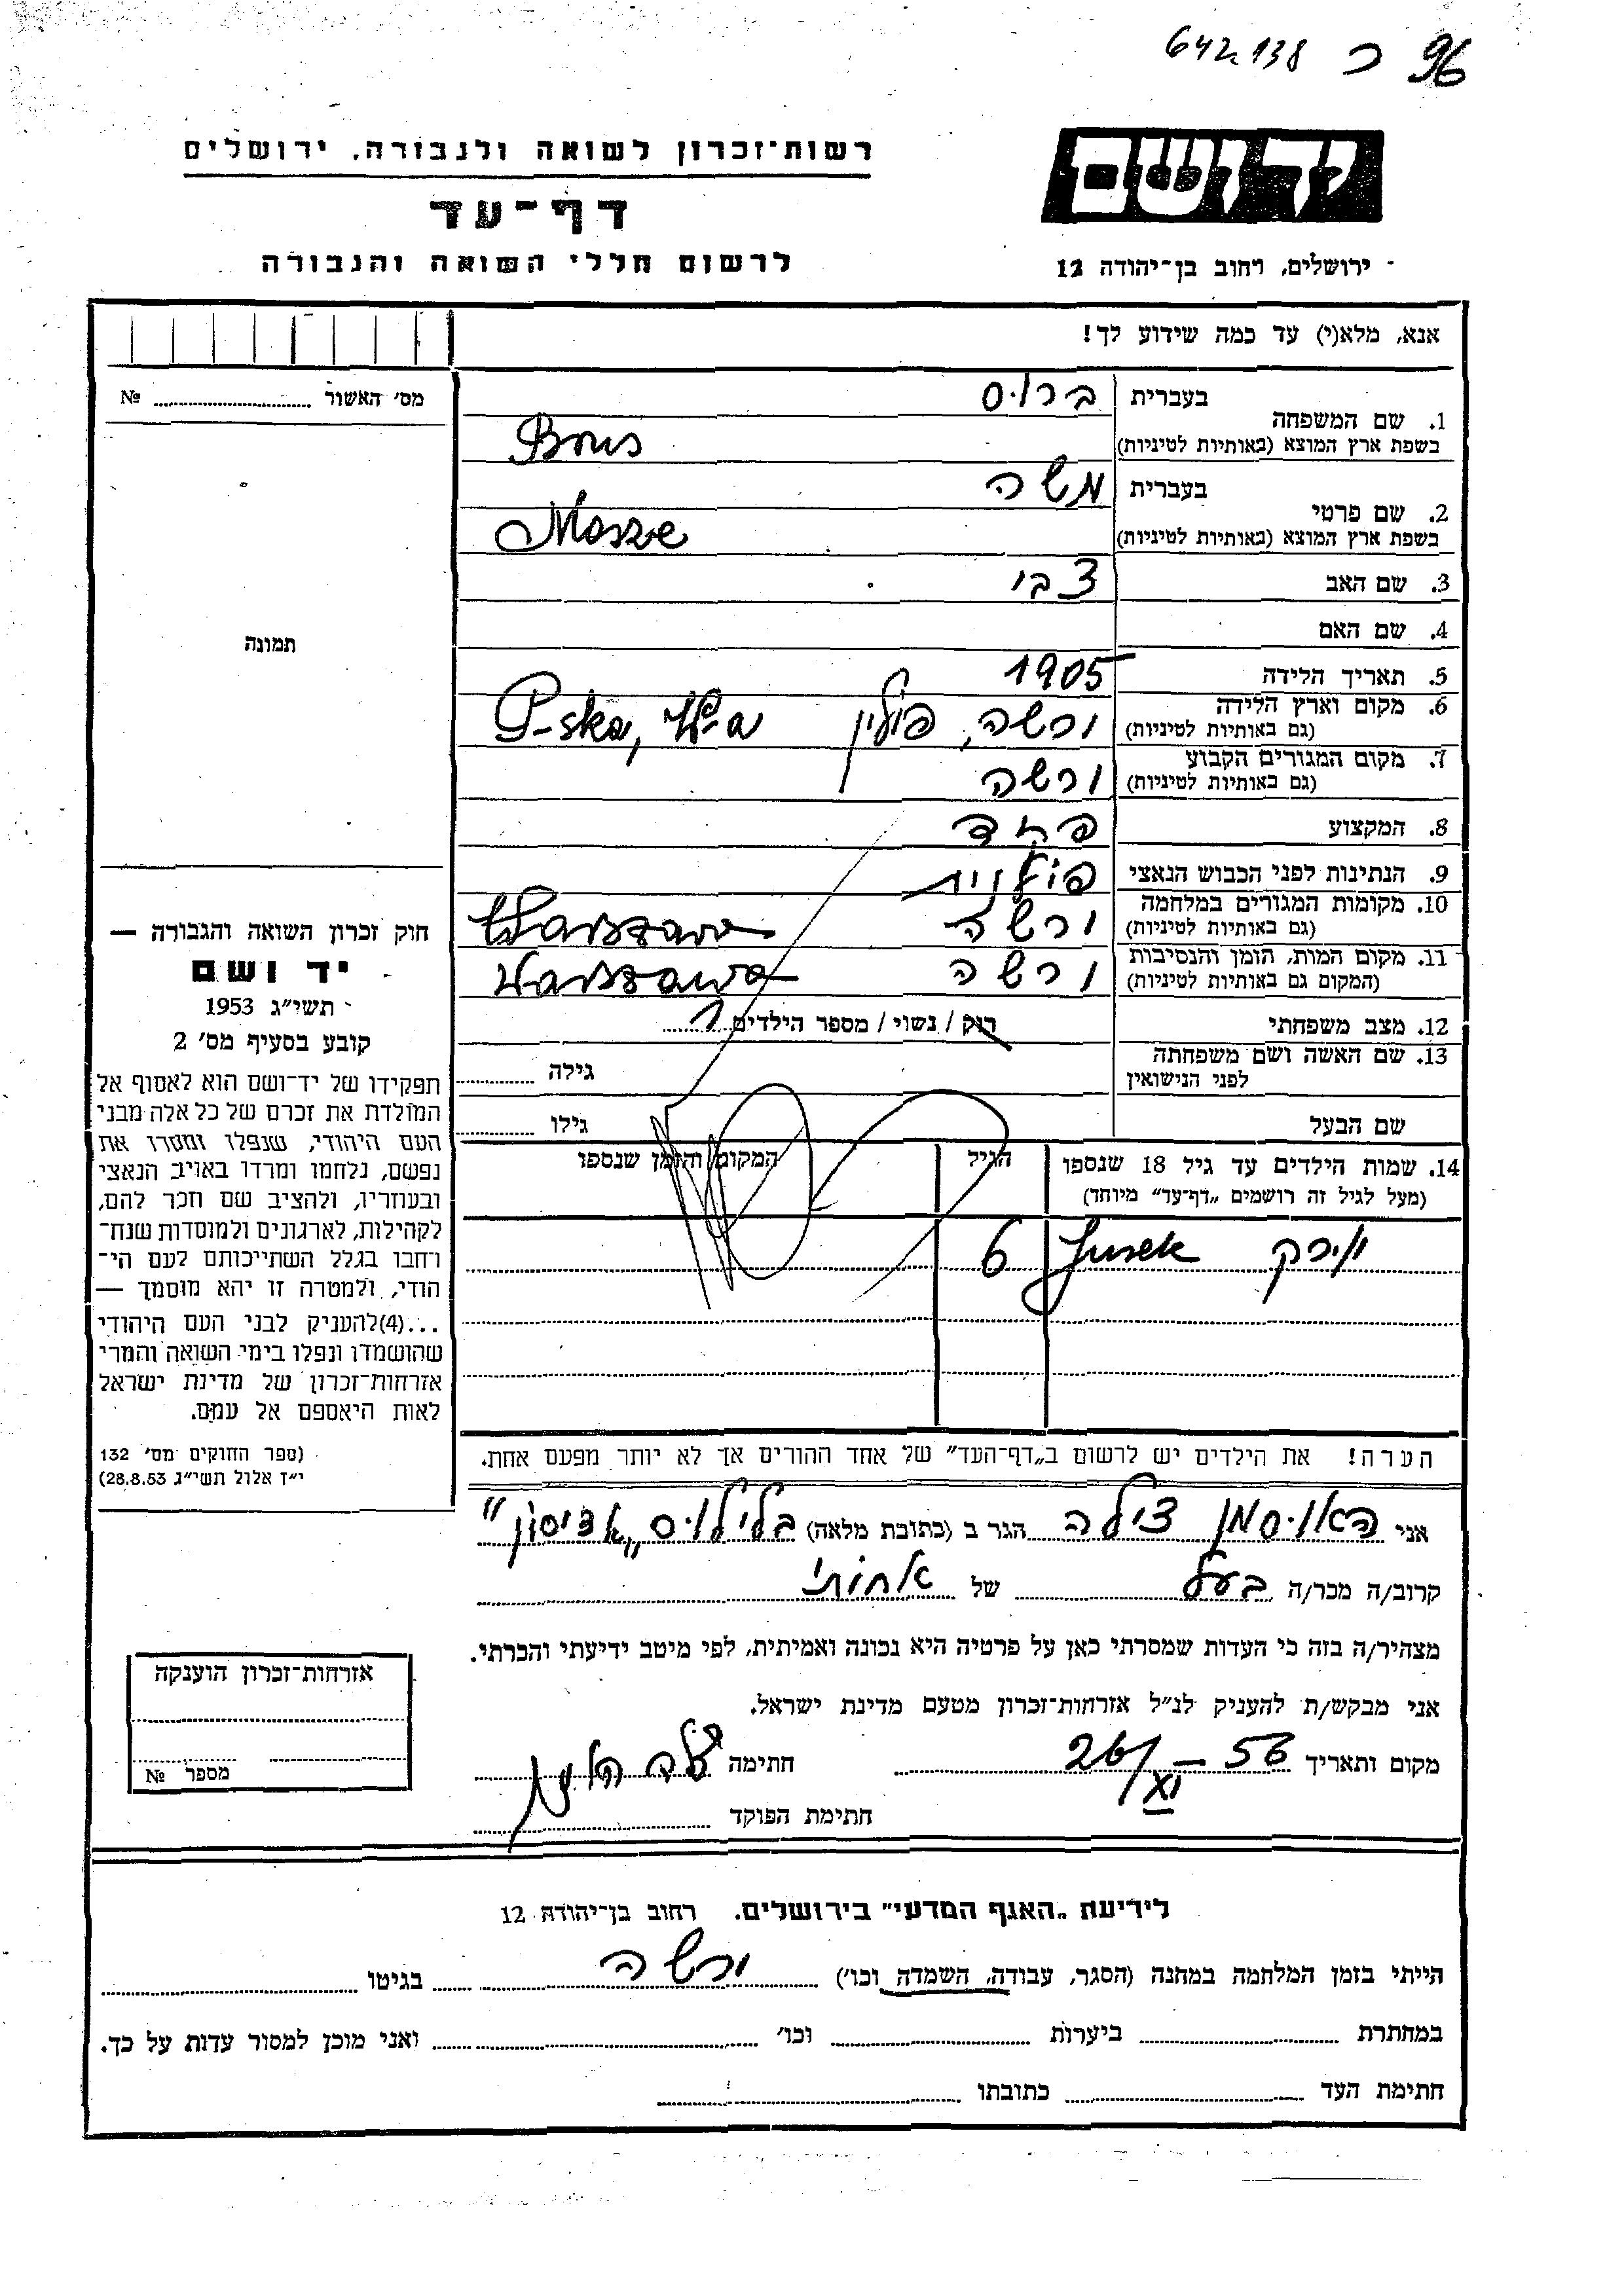 642.138 כ 96
יד ושם
רשות־זכרון לשואה ולגבורה, ירושלים
דף־עד
לרשום חללי השואה והגבורה
ירושלים, רחוב בן־יהודה 12
אנא, מלא(י) עד כמה שידוע לך!
מס׳ האשור № 
תמונה
1. שם המשפחה בעברית ברוס
בשפת ארץ המוצא (באותיות לטיניות) Brus
2. שם פרטי בעברית משה
בשפת ארץ המוצא (באותיות לטיניות) Mosze
3. שם האב צבי
4. שם האם
5. תאריך הלידה 1905
6. מקום וארץ הלידה (גם באותיות לטיניות) ורשה, פולין P-ska, W-a
7. מקום המגורים הקבוע (גם באותיות לטיניות) ורשה
8. המקצוע פקד
9. הנתינות לפני הכבוש הנאצי פולנית
10. מקומות המגורים במלחמה (גם באותיות לטיניות) ורשה Warszawa
11. מקום המות, הזמן והנסיבות (המקום גם באותיות לטיניות) ורשה Warszawa
12. מצב משפחתי רוק / נשוי / מספר הילדים 1
13. שם האשה ושם משפחתה לפני הנישואין גילה
שם הבעל גילו
14. שמות הילדים עד גיל 18 שנספו הגיל המקום והזמן שנספו
(מעל לגיל זה רושמים „דף־עד” מיוחד)
Jurek 6
הערה! את הילדים יש לרשום ב„דף־העד” של אחד ההורים אך לא יותר מפעם אחת.
חוק זכרון השואה והגבורה —
יד ושם
תשי״ג 1953
קובע בסעיף מס׳ 2
תפקידו של יד־ושם הוא לאסוף אל
המולדת את זכרם של כל אלה מבני
העם היהודי, שנפלו ומסרו את
נפשם, נלחמו ומרדו באויב הנאצי
ובעוזריו, ולהציב שם וזכר להם,
לקהילות, לארגונים ולמוסדות שנח־
רחבו בגלל השתייכותם לעם הי־
הודי, ולמטרה זו יהא מוסמך —
...(4) להעניק לבני העם היהודי
שהושמדו ונפלו בימי השואה והמרי
אזרחות־זכרון של מדינת ישראל
לאות היאספם אל עמם.
(ספר החוקים מס׳ 132
י״ז אלול תשי״ג 28.8.53)
אני האוסמן צילה הגר ב (כתובת מלאה)
קרוב/ה מכר/ה בעל של אחותי
מצהיר/ה בזה כי העדות שמסרתי כאן על פרטיה היא נכונה ואמיתית, לפי מיטב ידיעתי והכרתי.
אני מבקש/ת להעניק לנ״ל אזרחות־זכרון מטעם מדינת ישראל.
מקום ותאריך 26/XI – 56 חתימה
חתימת הפוקד
אזרחות־זכרון הוענקה
מספר №
לידיעת „האגף המדעי” בירושלים, רחוב בן־יהודה 12
הייתי בזמן המלחמה במחנה (הסגר, עבודה, השמדה וכו׳) ורשה בגיטו
במחתרת ביערות וכו׳ ואני מוכן למסור עדות על כך.
חתימת העד כתובתו